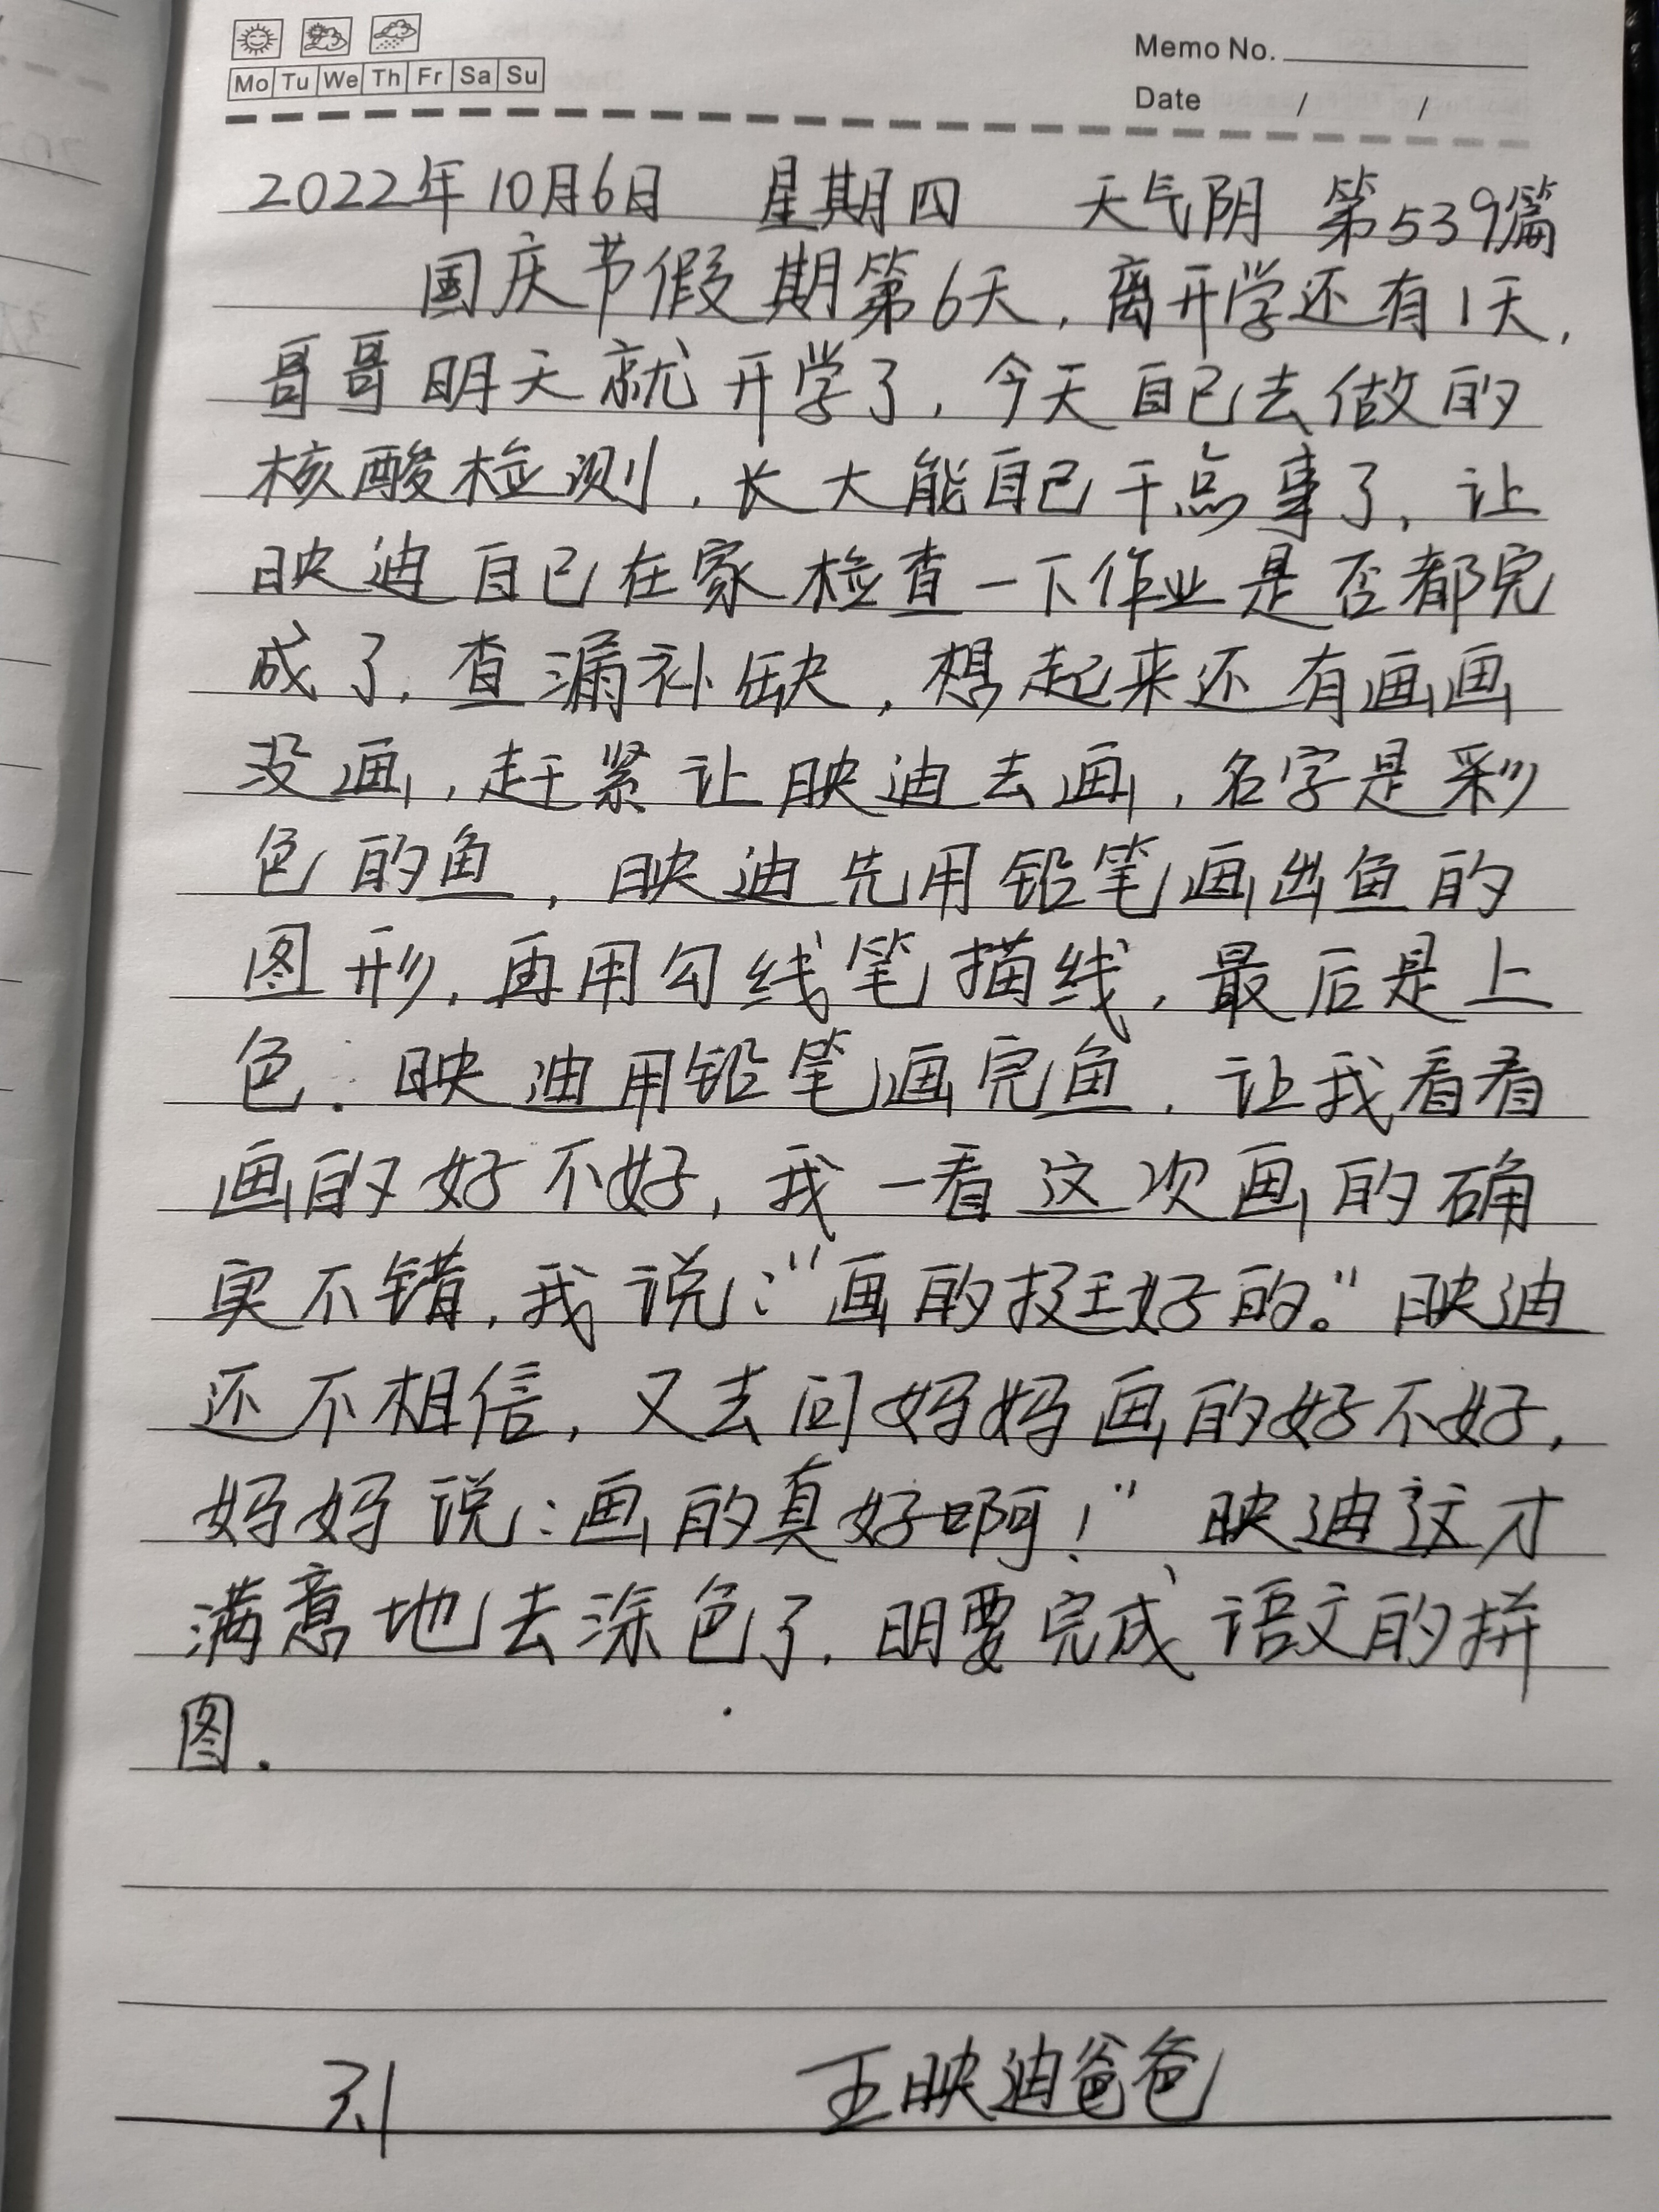 Mo Tu We Th Fr Sa Su
Memo No.
Date / /
2022年10月6日 星期四 天气阴 第539篇
国庆节假期第6天,离开学还有1天,
哥哥明天就开学了,今天自己去做的
核酸检测,长大能自己干点事了,让
映迪自己在家检查一下作业是否都完
成了,查漏补缺,想起来还有画画
没画,赶紧让映迪去画,名字是彩
色的鱼,映迪先用铅笔画出鱼的
图形,再用勾线笔描线,最后是上
色.映迪用铅笔画完鱼,让我看看
画的好不好,我一看这次画的确
实不错,我说:“画的挺好的。”映迪
还不相信,又去问妈妈画的好不好,
妈妈说:画的真好啊!”映迪这才
满意地去涂色了,明要完成语文的拼
图.
王映迪爸爸